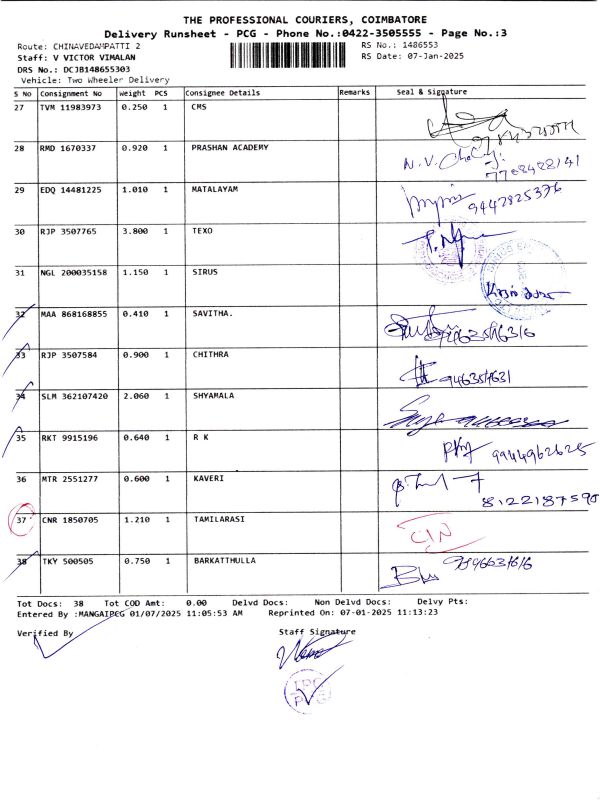 THE PROFESSIONAL COURIERS, COIMBATORE
Delivery Runsheet - PCG - Phone No.:0422-3505555 - Page No.:3
Route: CHINAVEDAMPATTI 2 RS No.: 1486553
Staff: V VICTOR VIMALAN RS Date: 07-Jan-2025
DRS No.: DCJB148655303
Vehicle: Two Wheeler Delivery
S No Consignment No Weight PCS Consignee Details Remarks Seal & Signature
27 TVM 11983973 0.250 1 CMS
28 RMD 1670337 0.920 1 PRASHAN ACADEMY N.V.
29 EDQ 14481225 1.010 1 MATALAYAM 9447825376
30 RJP 3507765 3.800 1 TEXO
31 NGL 200035158 1.150 1 SIRUS
32 MAA 868168855 0.410 1 SAVITHA.
33 RJP 3507584 0.900 1 CHITHRA
34 SLM 362107420 2.060 1 SHYAMALA
35 RKT 9915196 0.640 1 R K 9944962625
36 MTR 2551277 0.600 1 KAVERI 8122187590
37 CNR 1850705 1.210 1 TAMILARASI CIN
38 TKY 500505 0.750 1 BARKATTHULLA
Tot Docs: 38 Tot COD Amt: 0.00 Delvd Docs: Non Delvd Docs: Delvy Pts:
Entered By :MANGAIPCG 01/07/2025 11:05:53 AM Reprinted On: 07-01-2025 11:13:23
Verified By Staff Signature